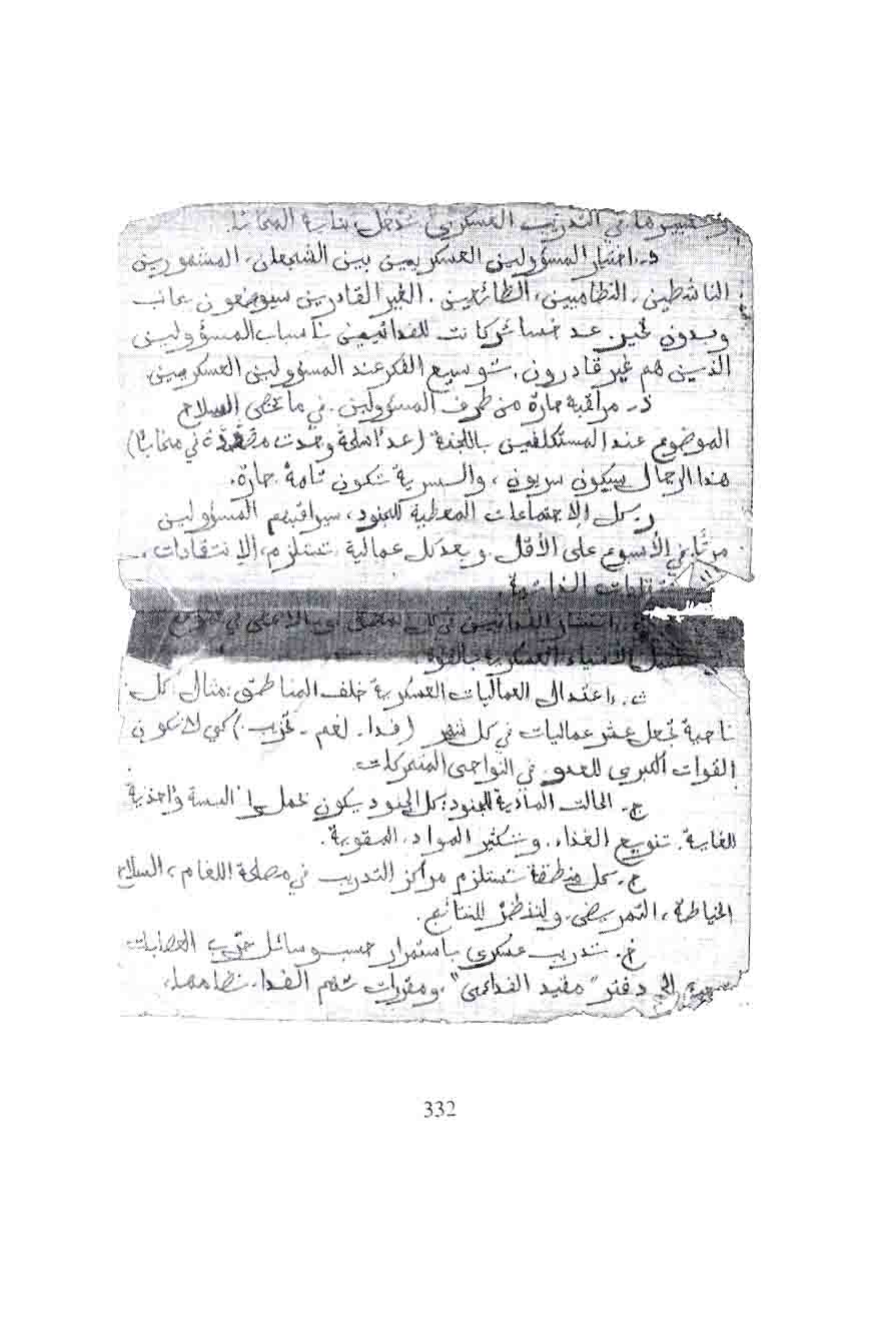 في التدريب العسكري تدخل بنايـة المخابئا.
د. اختيار المسؤولين العسكريين بين الشجعان، المشهورين
الناشطين، النظاميين، الطائعين. الغير القادرين سيوضعون عائب
وبدون تحيز. عدد خسائر كانت للفدائيين بأسباب المسؤولين
الذين هم غير قادرون. توسيع الفكر عند المسؤولين العسكريين.
ذ. مراقبة حارة من طرف المسؤولين. في ما تخص السلاح
الموضوع عند المستكلفين باللجنة (عدا اسلحة وجدت في مخابئا)
هذا الرجال سيكون سريون، والسرية تكون تامة. حارة.
ر. كل الاجتماعات المعطية للجنود، سيراقبهم المسؤولين
مرتا في الأسبوع على الأقل. وبعد كل عمالية تستلزم، الانتقادات،
الذاتية.
انتشار الفدائيين في كل
الأشياء العسكرية بالقوة.
ث. اعتدال العماليات العسكرية خلف المناطق: مثال: كل
ناحية تجعل عشر عماليات في كل شهر (فدا. لغم - تخريب.) كي لا تكون
القوات الكبرى للعدو. في النواحي المتحركات.
ج. الحالت المادية للجنود: كل الجنود يكون البسة وأحذية
للغاية. تنويع الغذاء. وتكثير المواد. المقوية.
ح. كل منطقة تستلزم مراكز التدريب في مصلحة اللغام، السلاح
الخياطة، التمريض. ولننظر للنتائج.
خ. تدريب عسكري باستمرار حسب وسائل حرب العصابات
الى دفتر "مفيد الفدائي"، ومقررات تهم الفدا. نظامها.
332